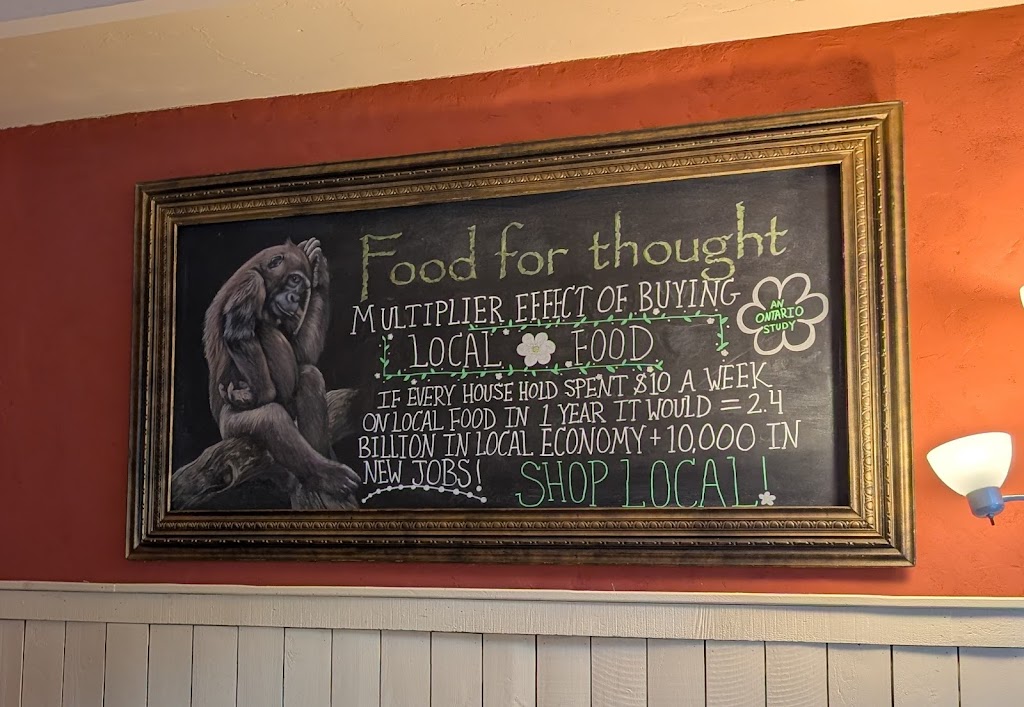 Food for thought
MULTIPLIER EFFECT OF BUYING
LOCAL FOOD
AN
ONTARIO
STUDY
IF EVERY HOUSE HOLD SPENT $10 A WEEK
ON LOCAL FOOD IN 1 YEAR IT WOULD = 2.4
BILLION IN LOCAL ECONOMY + 10,000 IN
NEW JOBS!
SHOP LOCAL!